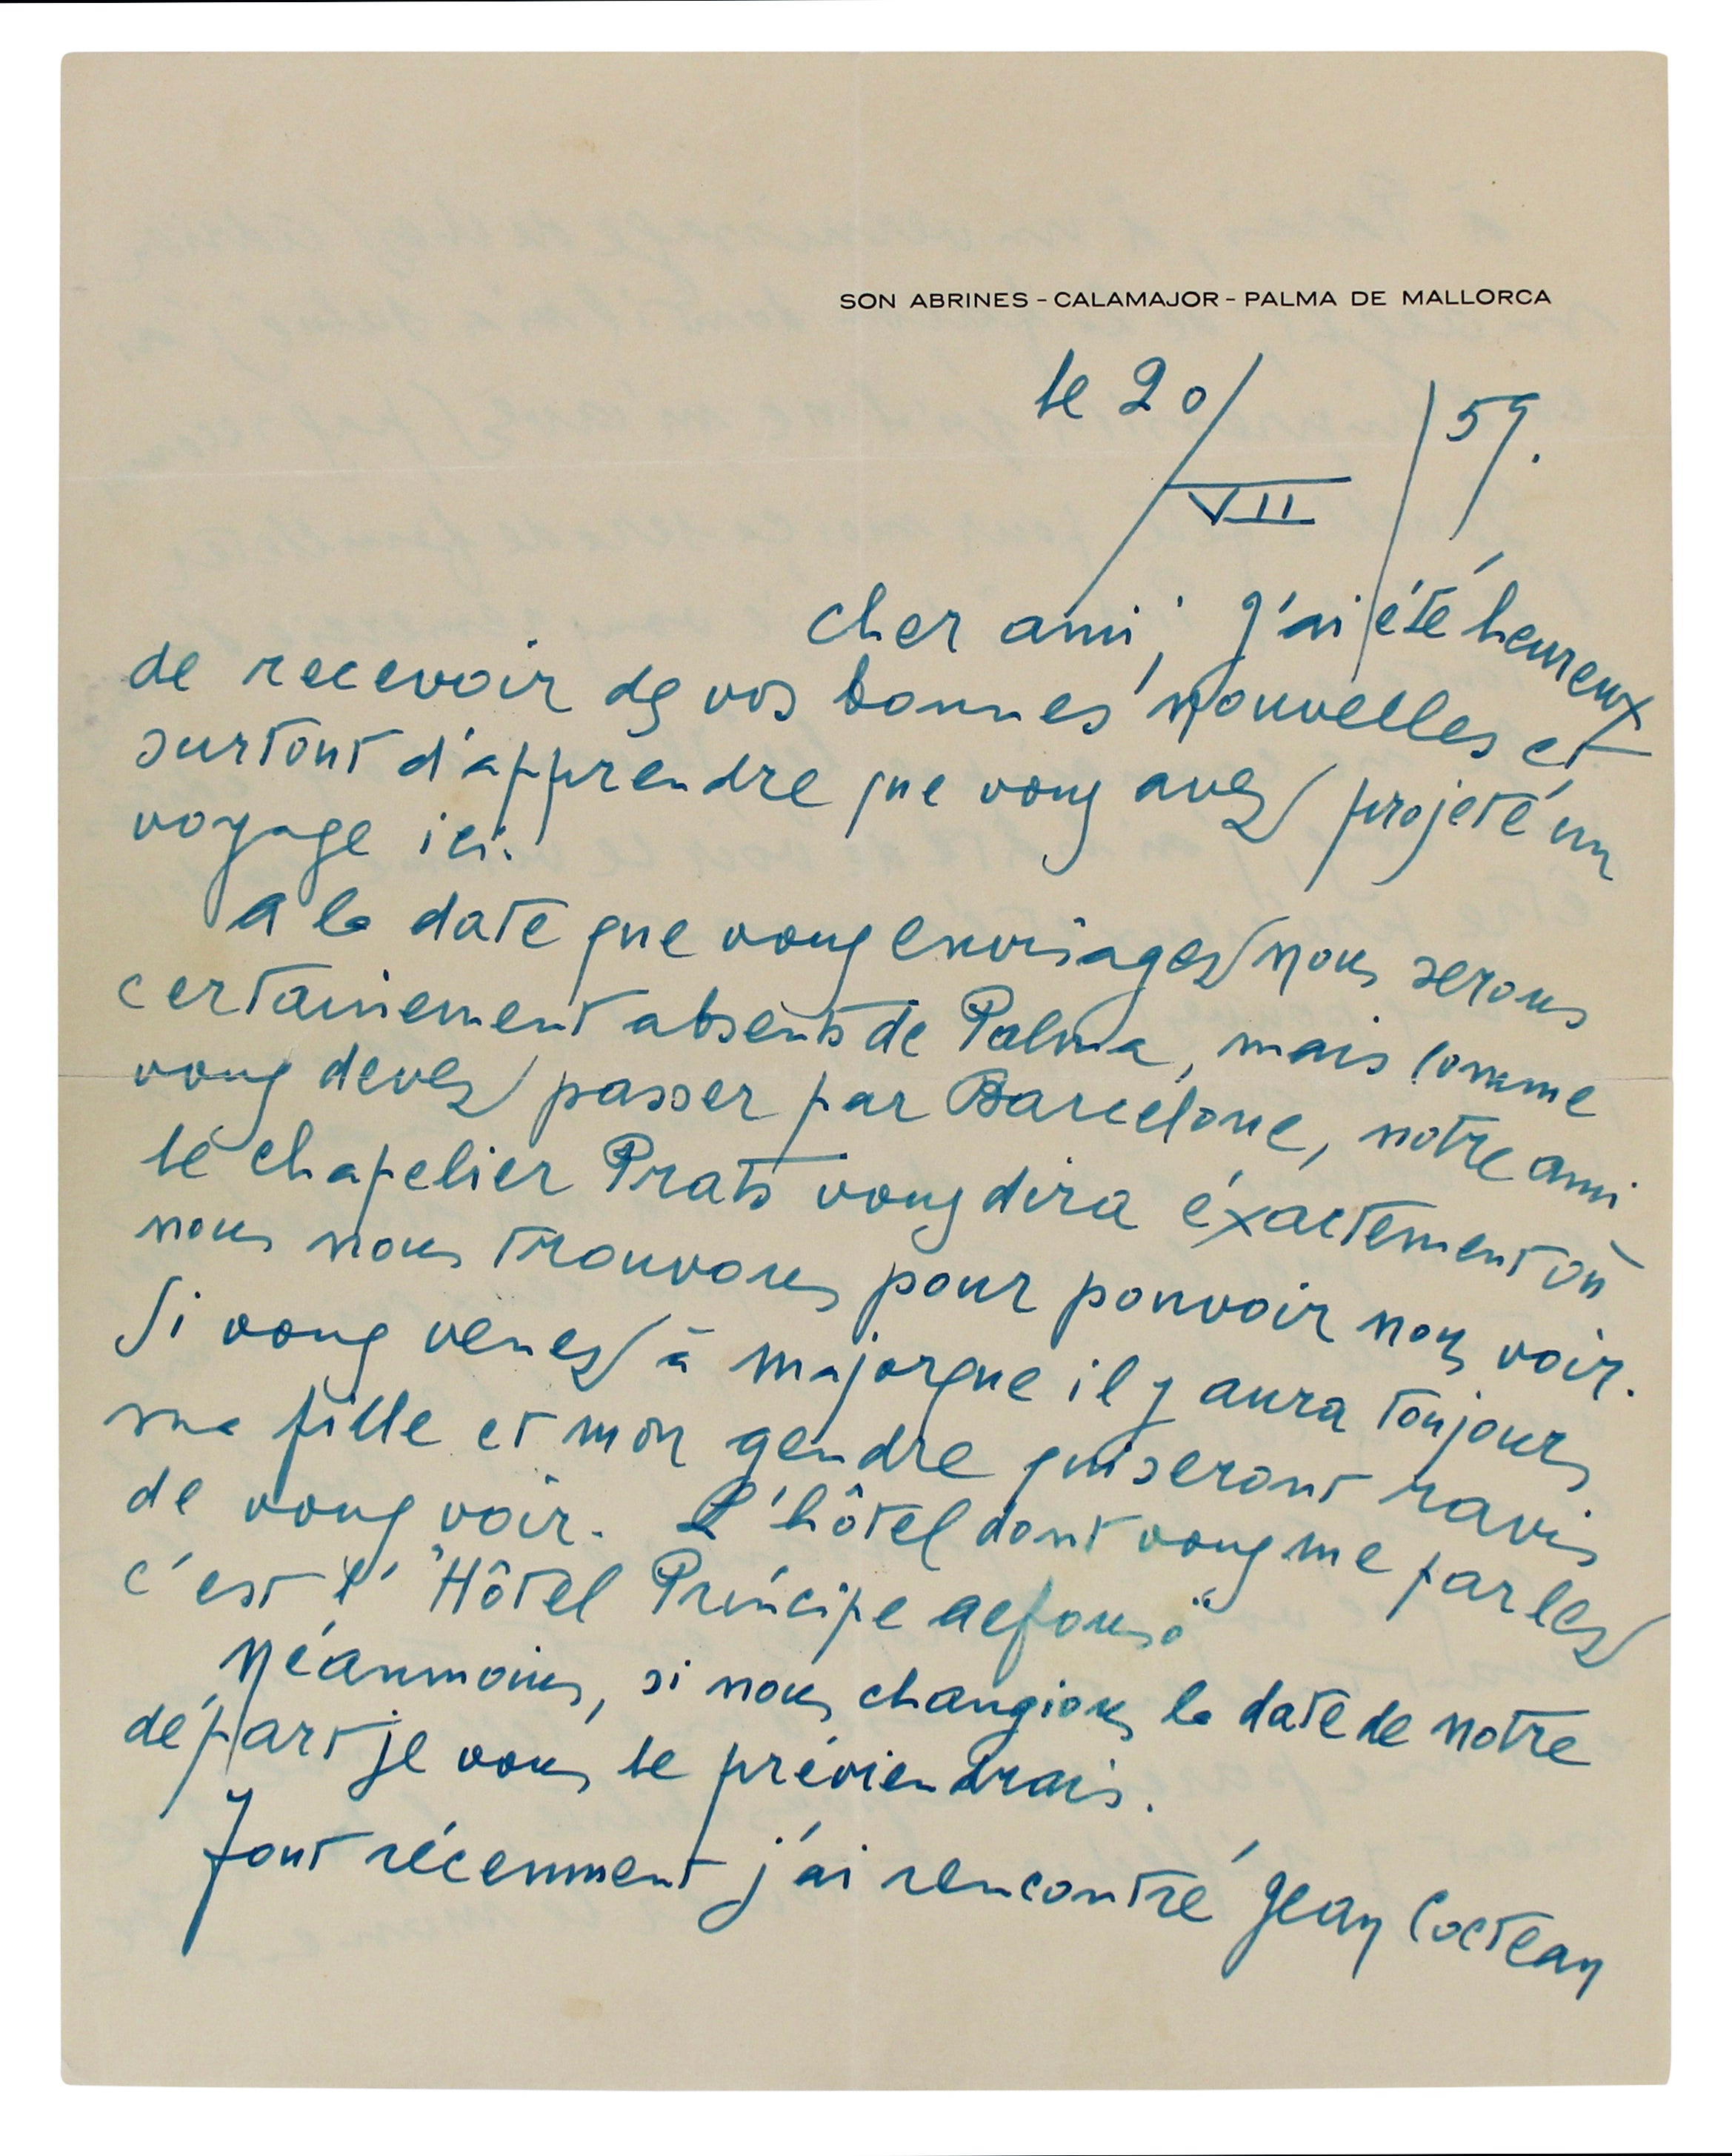 SON ABRINES - CALAMAJOR - PALMA DE MALLORCA
le 20/VII/59.
cher ami, j'ai été heureux
de recevoir de vos bonnes nouvelles et
surtout d'apprendre que vous avez projeté un
voyage ici.
A la date que vous envisagez nous serons
certainement absents de Palma, mais comme
vous devez passer par Barcelone, notre ami
le chapelier Prats vous dira éxactement où
nous nous trouvons pour pouvoir nous voir.
Si vous venez à Majorque il y aura toujours
ma fille et mon gendre qui seront ravis
de vous voir. L'hôtel dont vous me parlez
c'est l' "Hôtel Príncipe Alfonso"
Néanmoins, si nous changions la date de notre
départ je vous le préviendrais.
Tout récemment j'ai rencontré Jean Cocteau